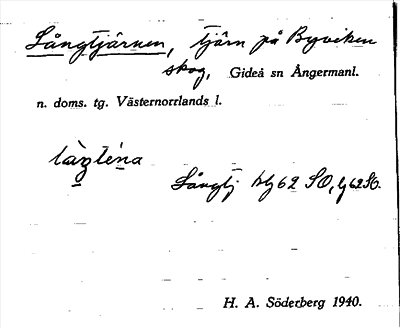 Långtjärnen, tjärn på Byviken
skog, Gideå sn Ångermanl.
n. doms. tg. Västernorrlands l.
Långtj hlg 62 SO, lg 62 SO.
H. A. Söderberg 1940.